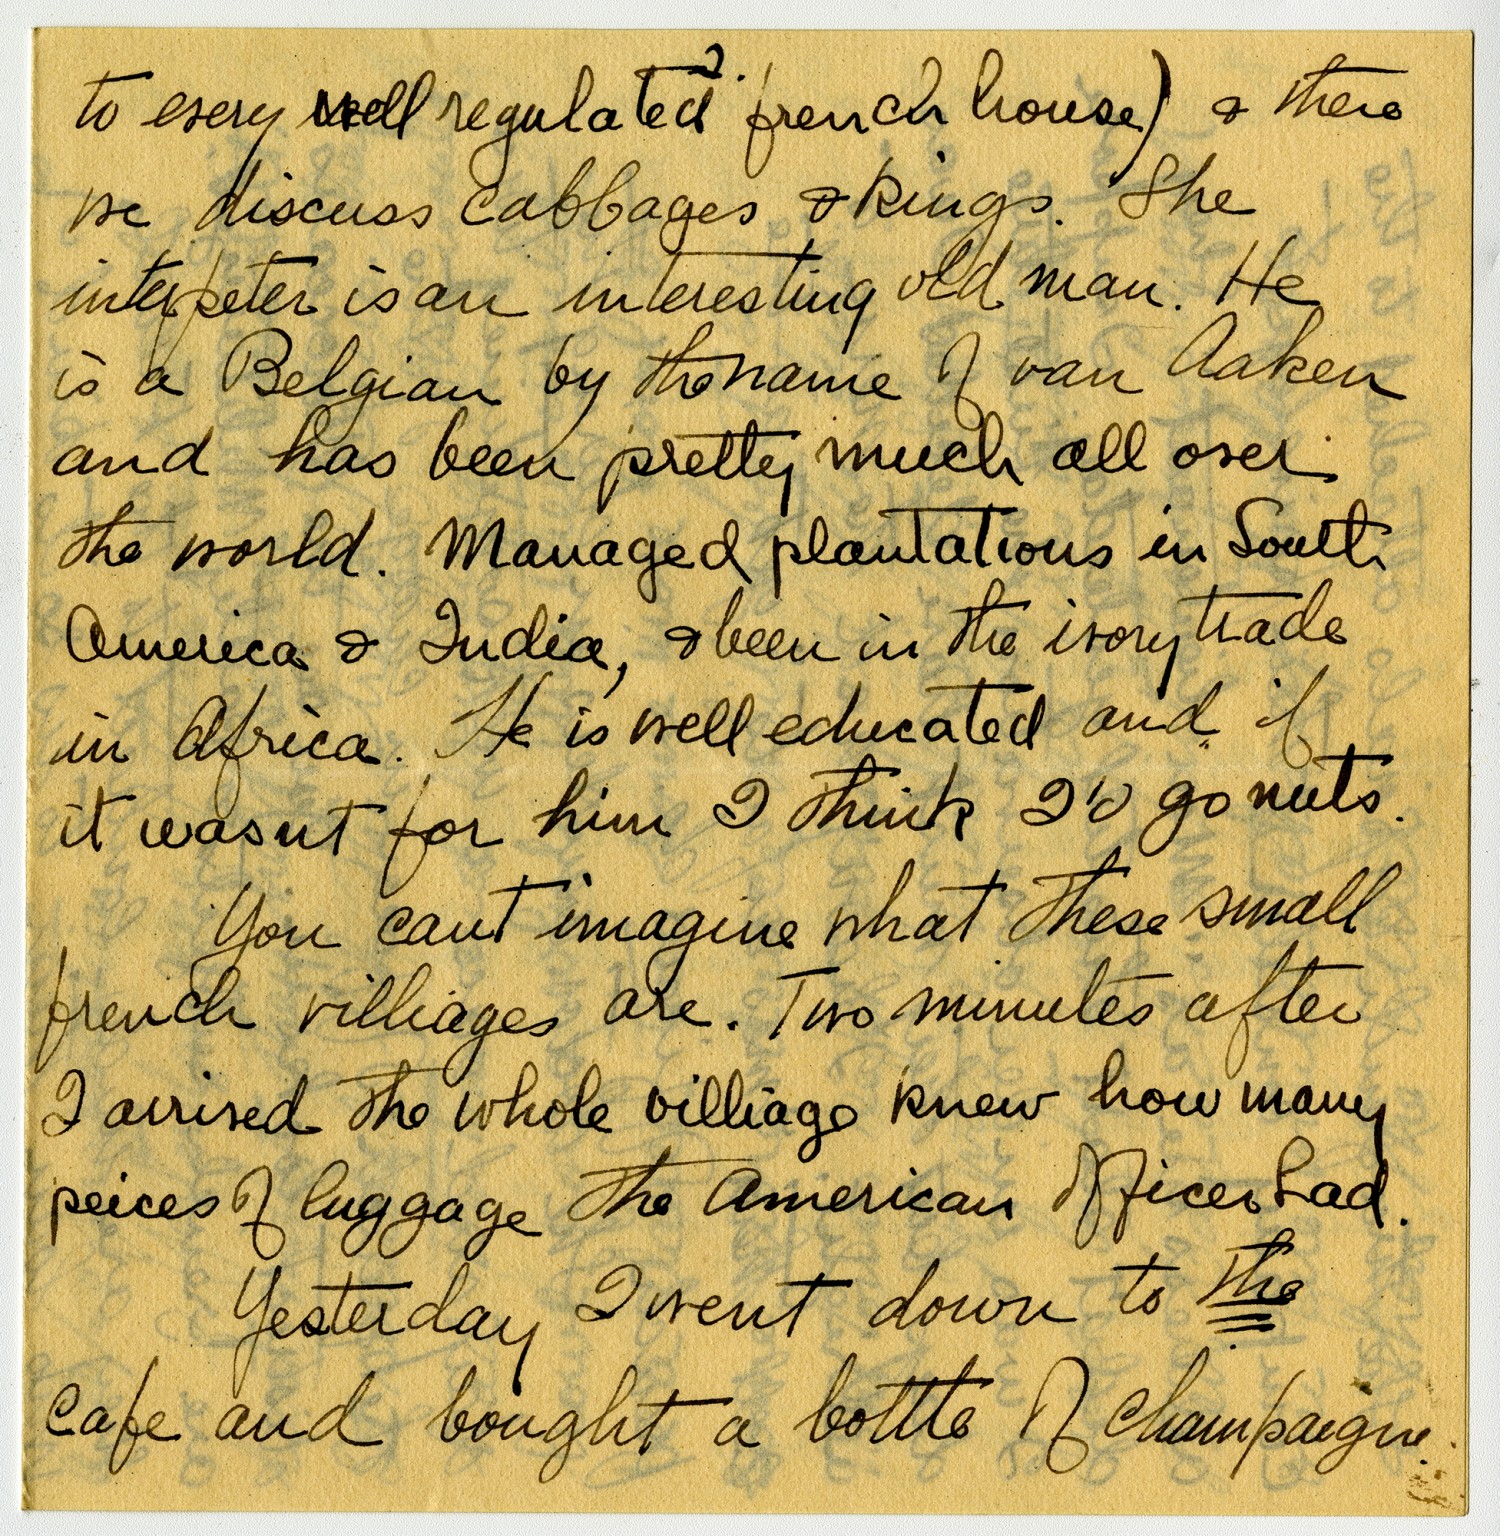 to every well regulated french house) & there
we discuss cabbages & kings. The
interpeter is an interesting old man. He
is a Belgian by the name of van Aaken
and has been pretty much all over
the world. Managed plantations in South
America & India, & been in the ivory trade
in Africa. He is well educated and if
it wasnt for him I think I'd go nuts.
You cant imagine what these small
french villiages are. Two minutes after
I arrived the whole villiage knew how many
peices of luggage the American officer had.
Yesterday I went down to the
cafe and bought a bottle of champaigne.